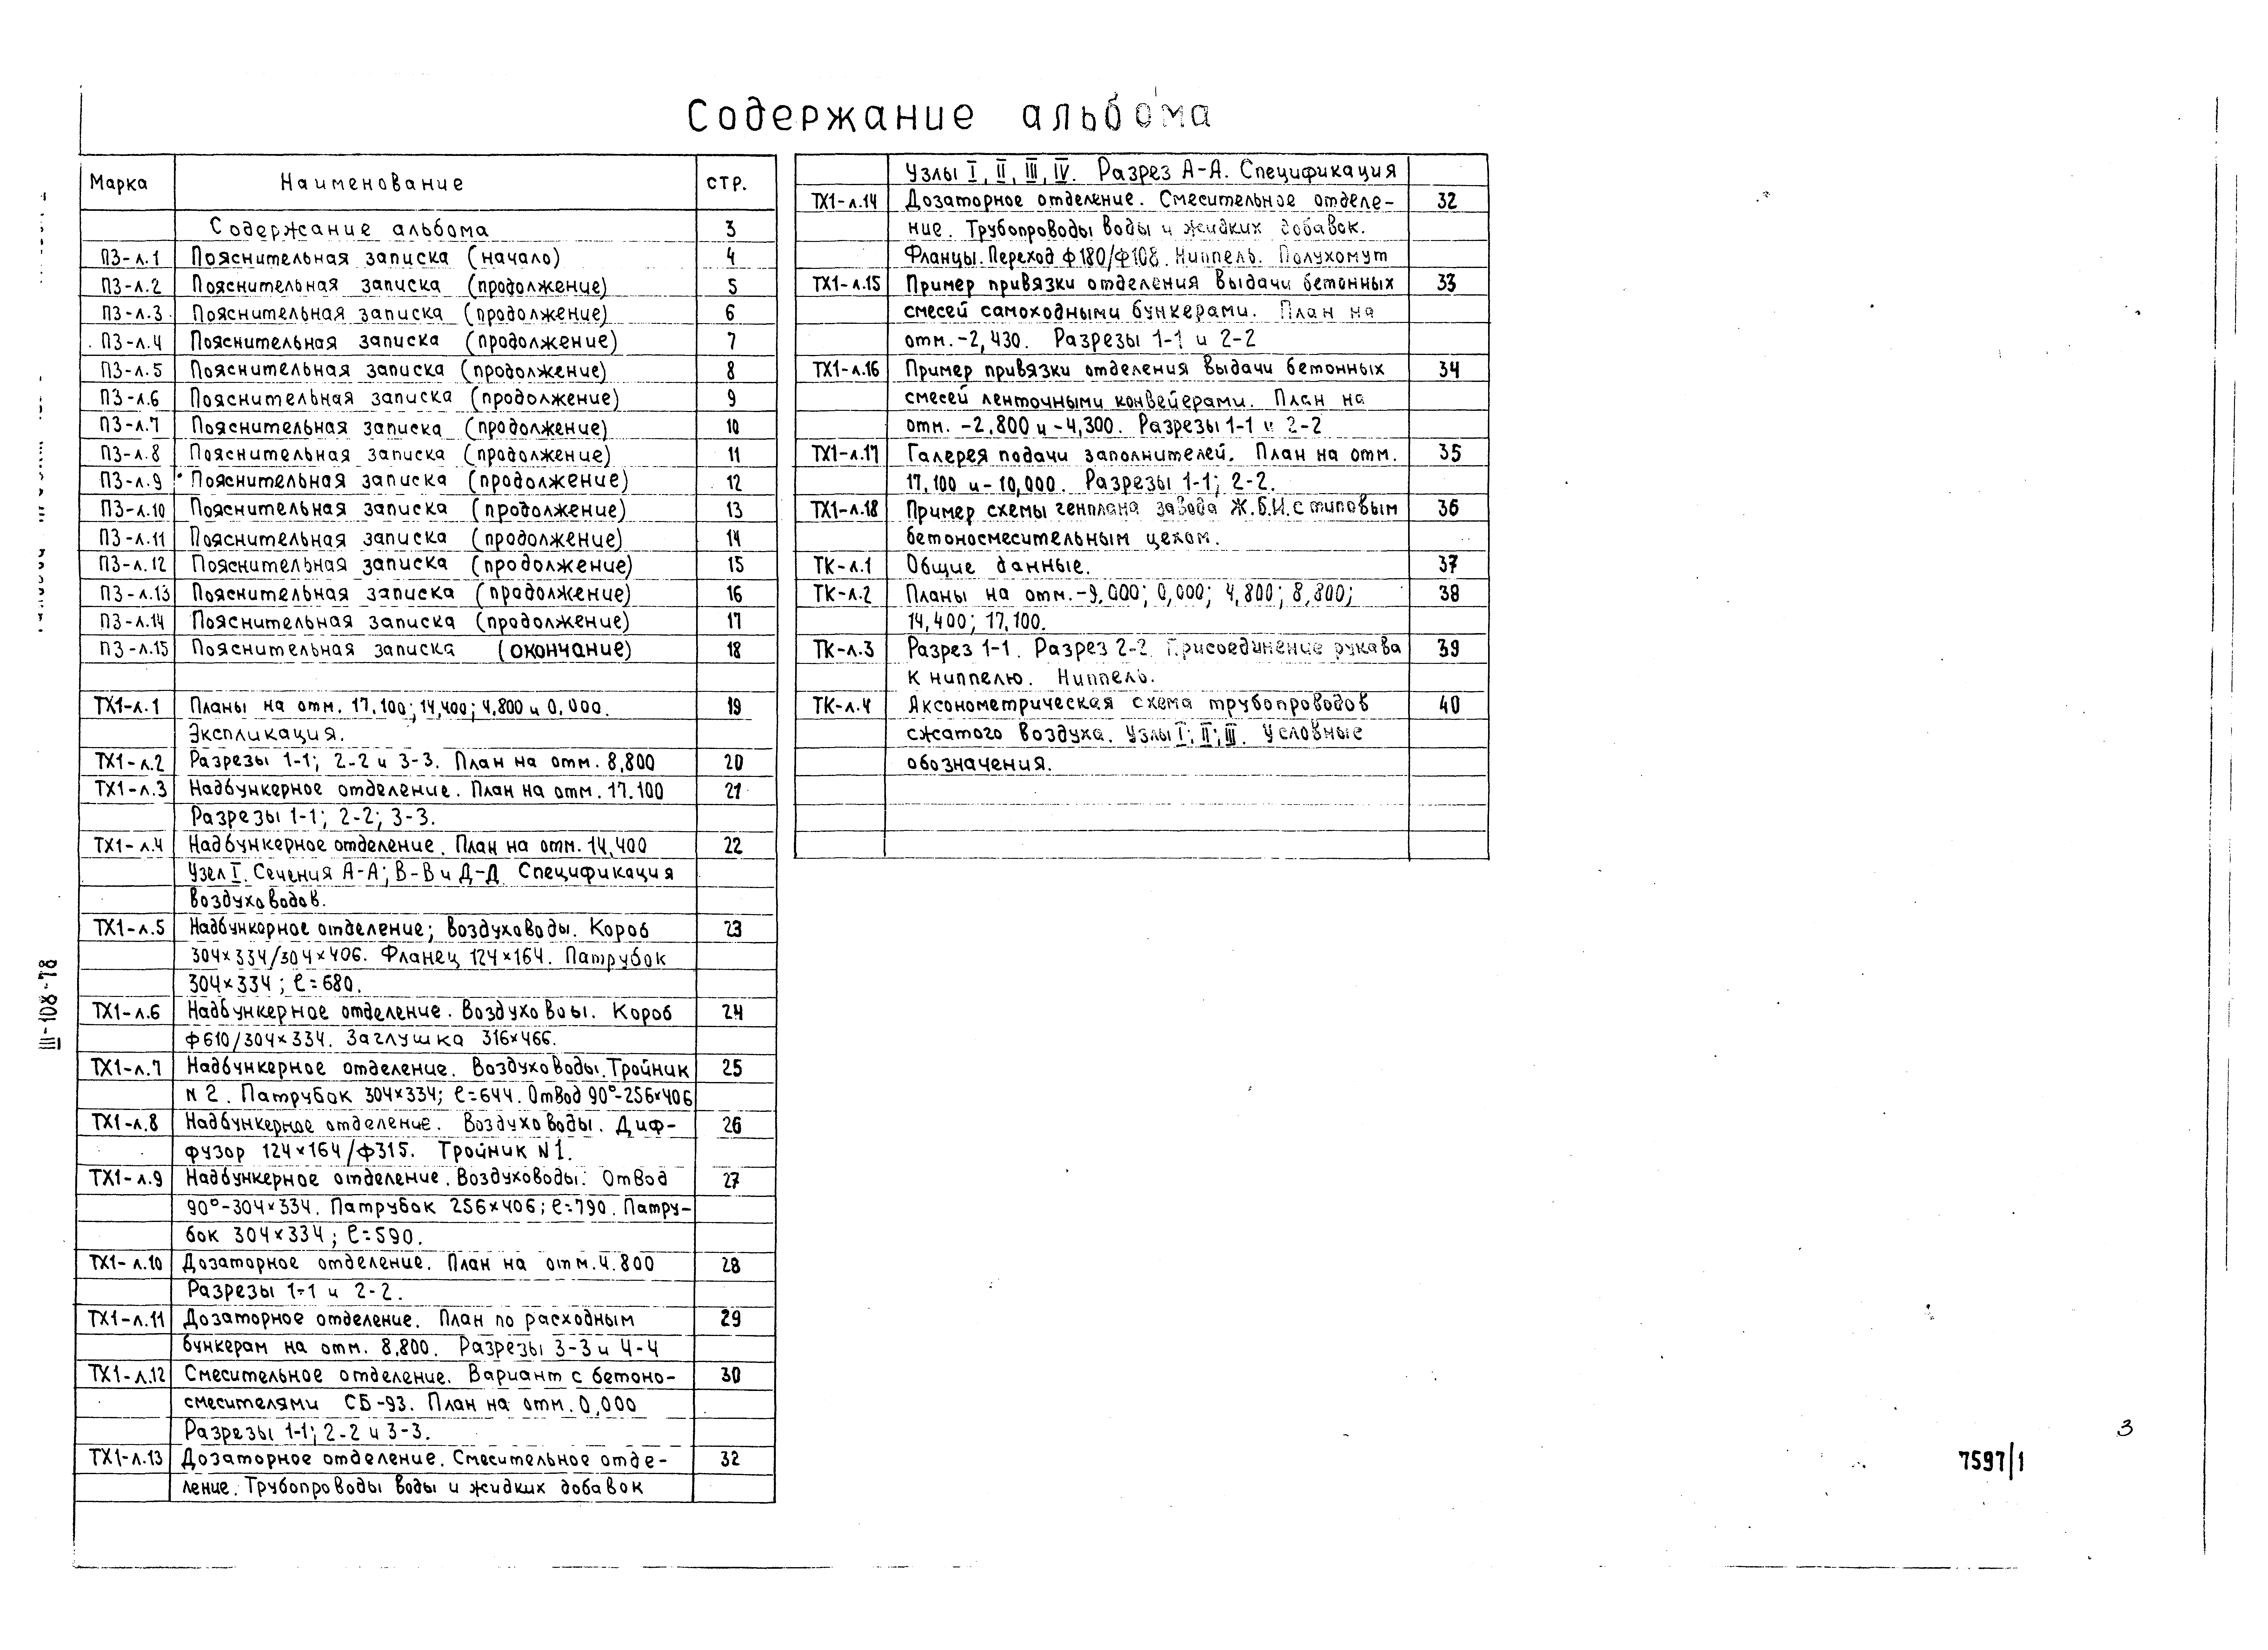 Содержание альбома
Марка Наименование стр.
Содержание альбома 3
ПЗ-л.1 Пояснительная записка (начало) 4
ПЗ-л.2 Пояснительная записка (продолжение) 5
ПЗ-л.3 Пояснительная записка (продолжение) 6
ПЗ-л.4 Пояснительная записка (продолжение) 7
ПЗ-л.5 Пояснительная записка (продолжение) 8
ПЗ-л.6 Пояснительная записка (продолжение) 9
ПЗ-л.7 Пояснительная записка (продолжение) 10
ПЗ-л.8 Пояснительная записка (продолжение) 11
ПЗ-л.9 Пояснительная записка (продолжение) 12
ПЗ-л.10 Пояснительная записка (продолжение) 13
ПЗ-л.11 Пояснительная записка (продолжение) 14
ПЗ-л.12 Пояснительная записка (продолжение) 15
ПЗ-л.13 Пояснительная записка (продолжение) 16
ПЗ-л.14 Пояснительная записка (продолжение) 17
ПЗ-л.15 Пояснительная записка (окончание) 18
ТХ1-л.1 Планы на отм. 17.100; 14,400; 4,800 и 0,000. 19
Экспликация.
ТХ1-л.2 Разрезы 1-1; 2-2 и 3-3. План на отм. 8,800 20
ТХ1-л.3 Надбункерное отделение. План на отм. 17.100 21
Разрезы 1-1; 2-2; 3-3.
ТХ1-л.4 Надбункерное отделение. План на отм. 14,400 22
Узел I. Сечения А-А; В-В и Д-Д. Спецификация
воздуховодов.
ТХ1-л.5 Надбункерное отделение; Воздуховоды. Короб 23
304×334/304×406. Фланец 124×164. Патрубок
304×334; ℓ=680.
ТХ1-л.6 Надбункерное отделение. Воздуховоы. Короб 24
ф610/304×334. Заглушка 316×466.
ТХ1-л.7 Надбункерное отделение. Воздуховоды. Тройник 25
N 2. Патрубок 304×334; ℓ=644. Отвод 90°-256×406
ТХ1-л.8 Надбункерное отделение. Воздуховоды. Диф- 26
фузор 124×164/ф315. Тройник N1.
ТХ1-л.9 Надбункерное отделение. Воздуховоды. Отвод 27
90°-304×334. Патрубок 256×406; ℓ=790. Патру-
бок 304×334; ℓ=590.
ТХ1-л.10 Дозаторное отделение. План на отм.4.800 28
Разрезы 1-1 и 2-2.
ТХ1-л.11 Дозаторное отделение. План по расходным 29
бункерам на отм. 8,800. Разрезы 3-3 и 4-4
ТХ1-л.12 Смесительное отделение. Вариант с бетоно- 30
смесителями СБ-93. План на отм. 0,000
Разрезы 1-1; 2-2 и 3-3.
ТХ1-л.13 Дозаторное отделение. Смесительное отде- 32
ление. Трубопроводы воды и жидких добавок
Узлы I, II, III, IV. Разрез А-А. Спецификация
ТХ1-л.14 Дозаторное отделение. Смесительное отделе- 32
ние. Трубопроводы воды и жидких добавок.
Фланцы. Переход ф180/ф108. Ниппель. Полухомут
ТХ1-л.15 Пример привязки отделения выдачи бетонных 33
смесей самоходными бункерами. План на
отм.-2,430. Разрезы 1-1 и 2-2
ТХ1-л.16 Пример привязки отделения выдачи бетонных 34
смесей ленточными конвейерами. План на
отм. -2.800 и -4,300. Разрезы 1-1 и 2-2
ТХ1-л.17 Галерея подачи заполнителей. План на отм. 35
17,100 и -10,000. Разрезы 1-1; 2-2.
ТХ1-л.18 Пример схемы генплана завода Ж.Б.И. с типовым 36
бетоносмесительным цехом.
ТК-л.1 Общие данные. 37
ТК-л.2 Планы на отм.-9,000; 0,000; 4,800; 8,800; 38
14,400; 17,100.
ТК-л.3 Разрез 1-1. Разрез 2-2. Присоединение рукава 39
к ниппелю. Ниппель.
ТК-л.4 Аксонометрическая схема трубопроводов 40
сжатого воздуха. Узлы I; II; III. Условные
обозначения.
III-108-78
3
7597/1